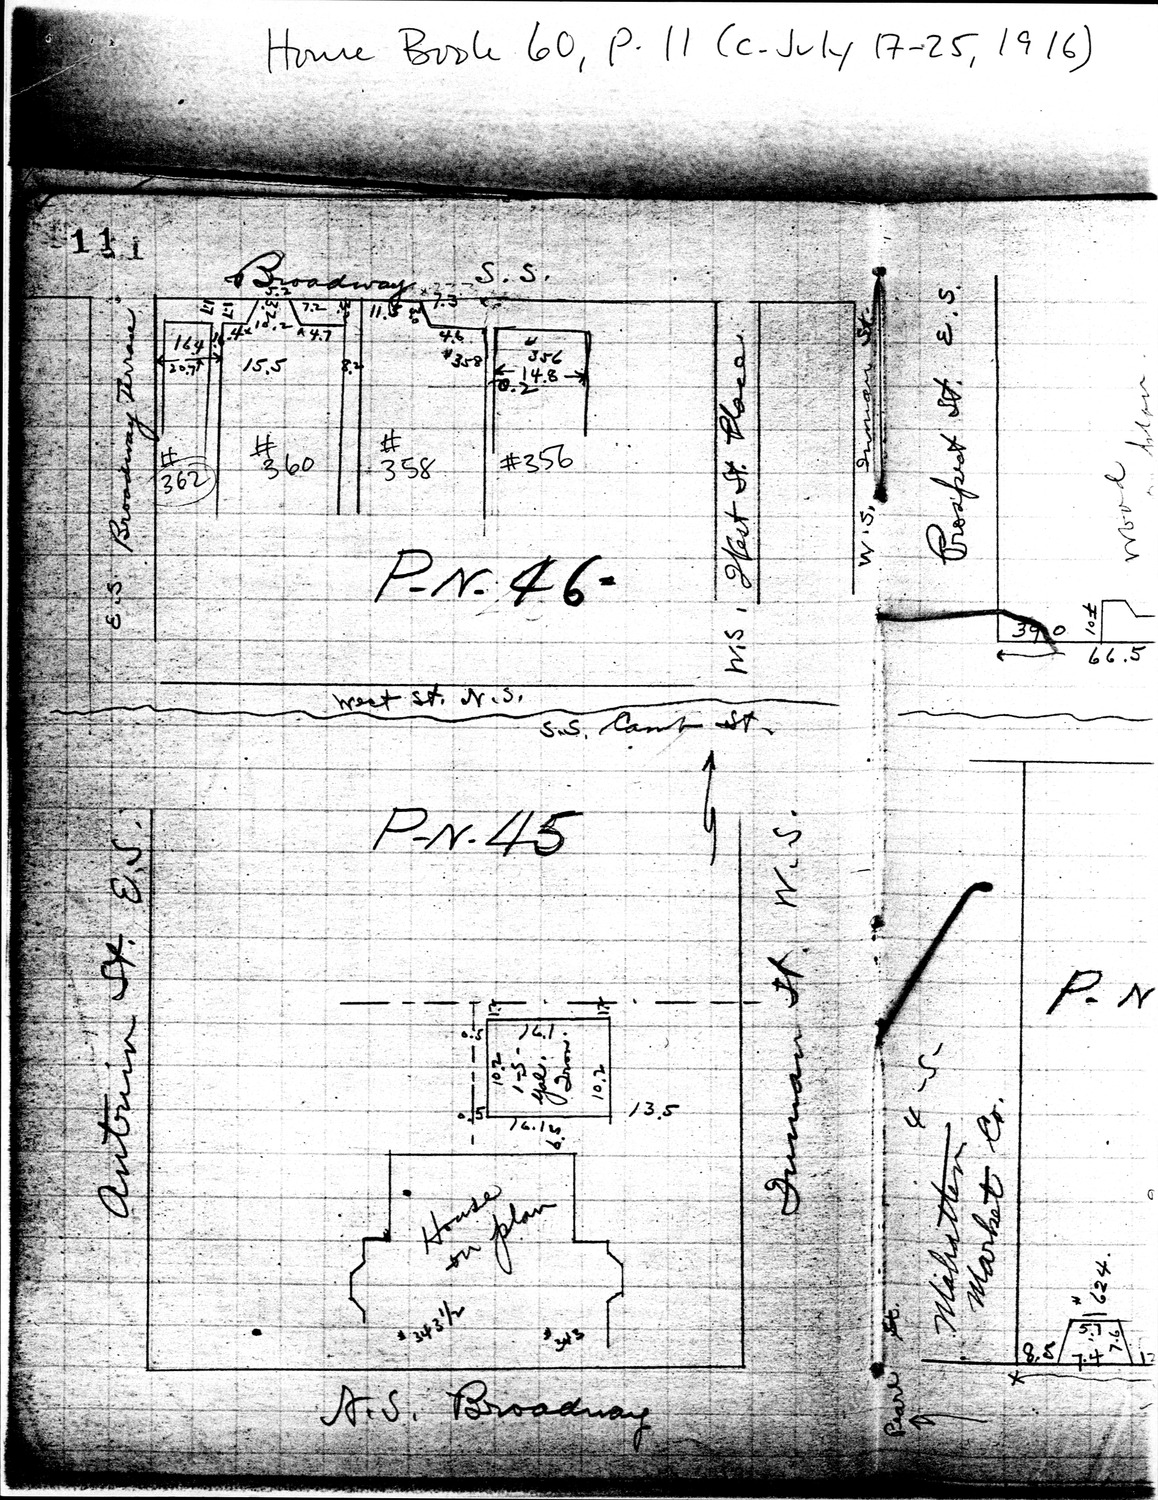 House Book 60, P. 11 (c. July 17-25, 1916)
111
Broadway S.S.
5.2
7.2
11.5
7.3
16.4
20.7
10.2
4.7
15.5
8.2
4.6
#358
#356
14.8
0.2
#362
#360
#358
#356
E.S. Broadway Terrace
W.S. West St. Place
W.S. Inman St.
Prospect St. E.S.
Wood
P-N-46-
39.0
10±
66.5
West St. N.S.
S.S. Camb St.
P-N-45
Antrim St. E.S.
Inman St. W.S.
P-N
17
17
0.5
16.1
10.2
1-S-
Gal.
Iron.
10.2
0.5
16.1
13.5
6.5
House
on plan
#343 1/2
#343
N.S. Broadway
4-S-
Manhatten
Market Co.
#624.
5.1
7.6
8.8
7.4
Pearl St.